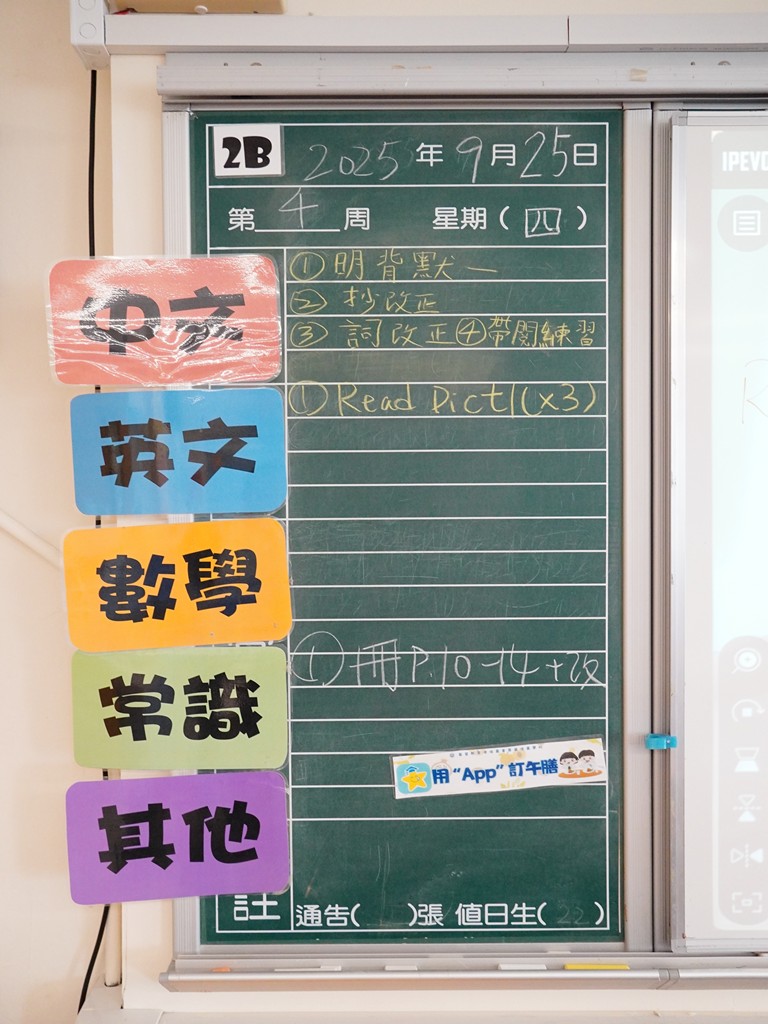 2B 2025年9月25日
第4周 星期(四)
中文
①明背默一
②抄改正
③詞改正④帶閱練習
英文
①Read Dict1(x3)
數學
常識
①冊P.10-14+改
用“App”訂午膳
其他
註 通告( )張 值日生(22)
IPEVO